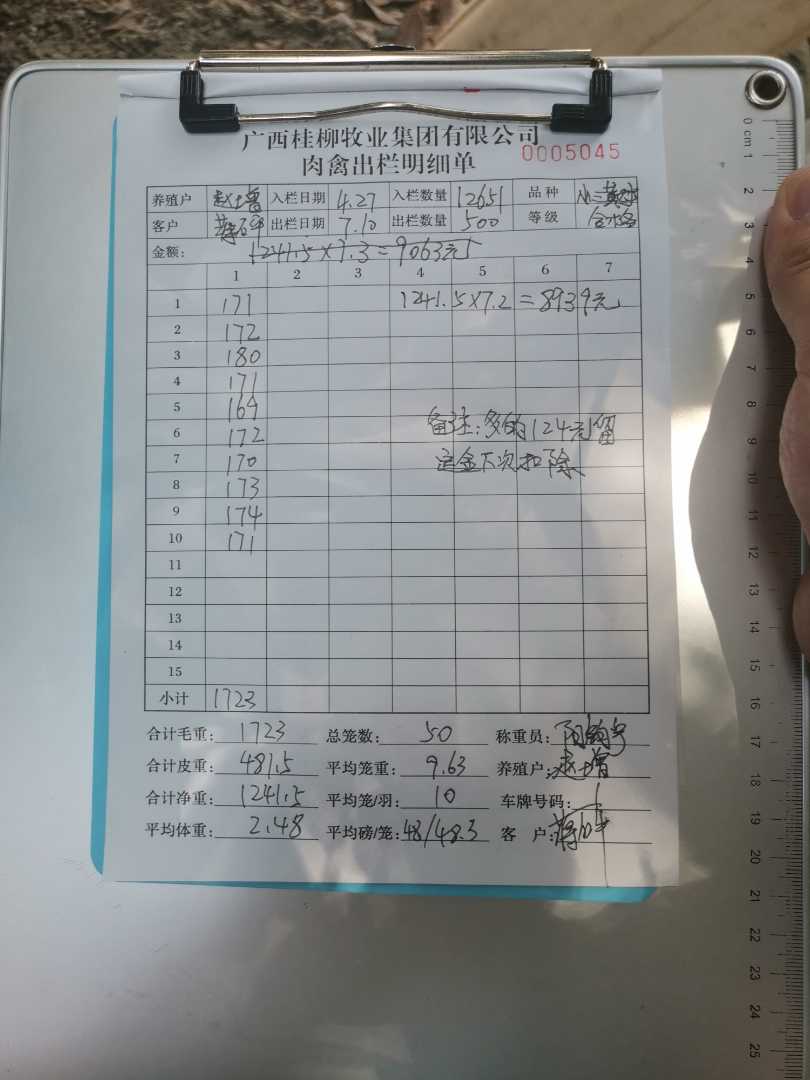 广西桂柳牧业集团有限公司
肉禽出栏明细单 0005045
养殖户 赵增 入栏日期 4.27 入栏数量 12651 品种
客户 出栏日期 7.10 出栏数量 500 等级
金额: 1241.5×7.3=9063元
1 2 3 4 5 6 7
1 171 1241.5×7.2=8939元
2 172
3 180
4 171
5 169
6 172 备注:多的124元留
7 170 定金下次扣除
8 173
9 174
10 171
11
12
13
14
15
小计 1723
合计毛重: 1723 总笼数: 50 称重员:
合计皮重: 481.5 平均笼重: 9.63 养殖户: 赵增
合计净重: 1241.5 平均笼/羽: 10 车牌号码:
平均体重: 2.48 平均磅/笼: 48/48.3 客 户:
0 cm 1
2
3
4
5
6
7
8
9
10
11
12
13
14
15
16
17
18
19
20
21
22
23
24
25